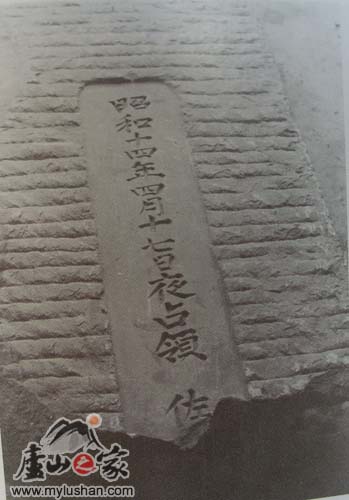 昭和十四年四月十七日夜占領
佐
廬山之家
www.mylushan.com